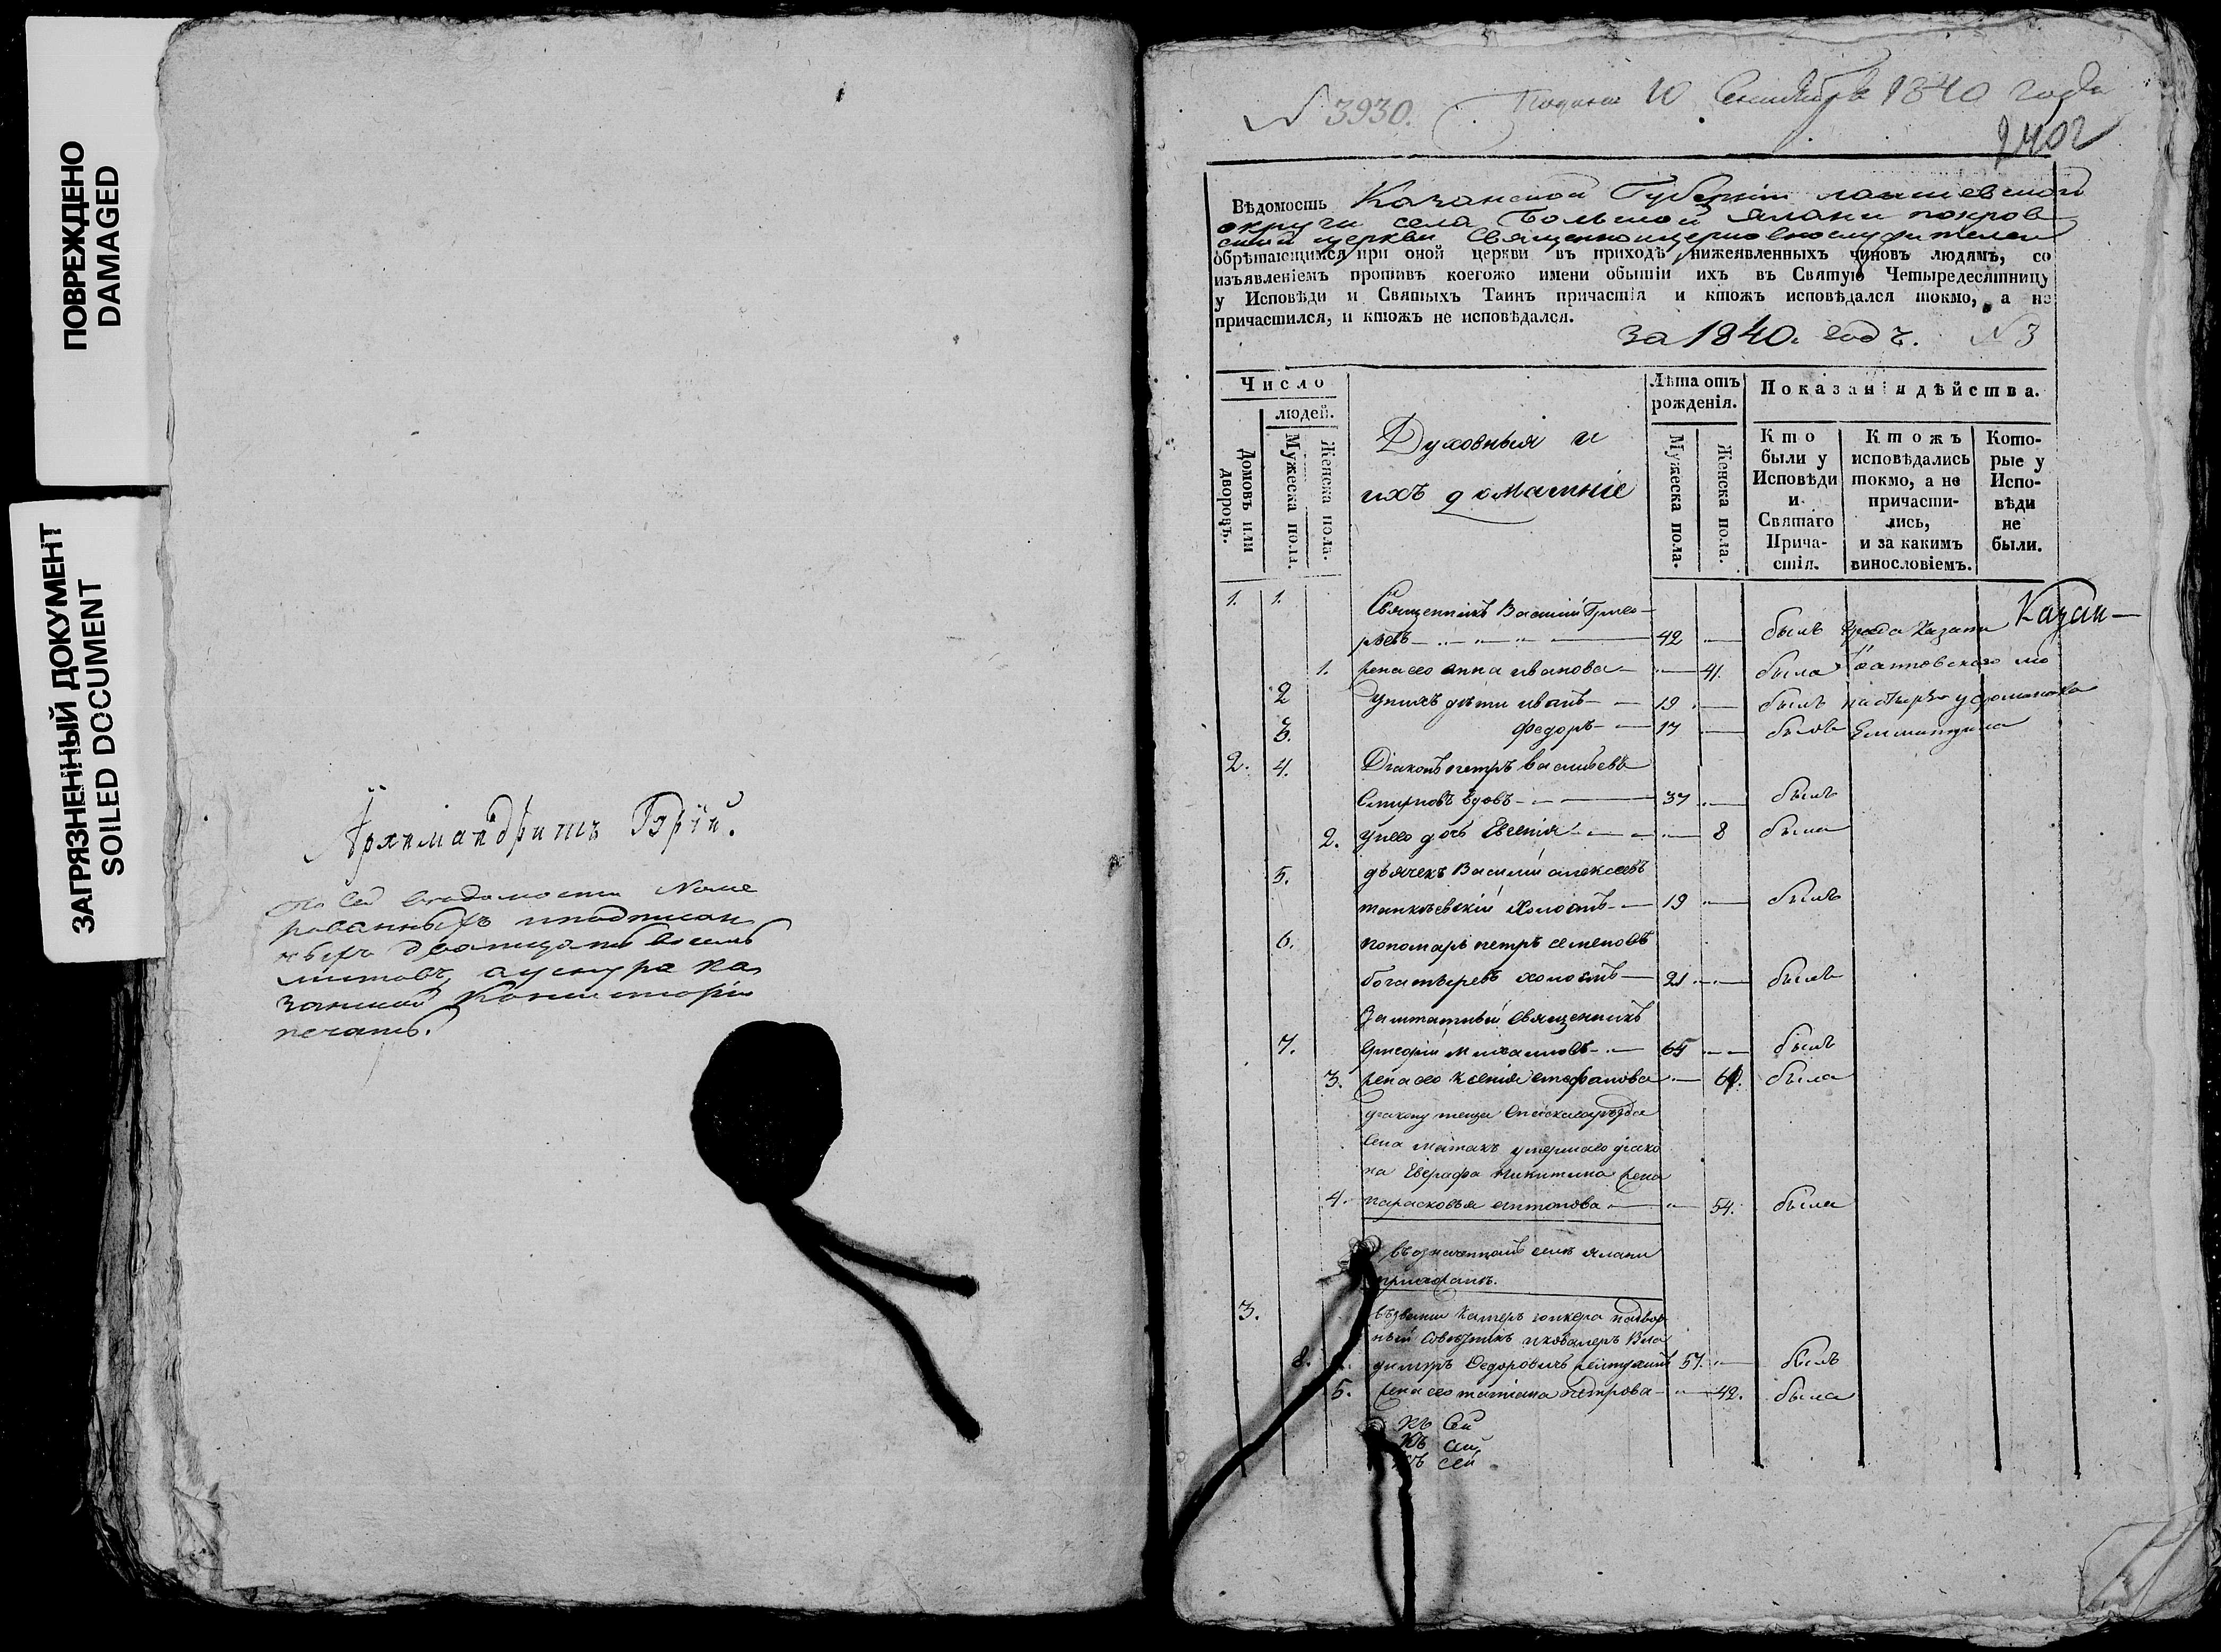 ПОВРЕЖДЕНО
DAMAGED
ЗАГРЯЗНЕННЫЙ ДОКУМЕНТ
SOILED DOCUMENT
Архимандритъ Гэрiй.
По сей ведомости Номе
рованныхъ и подписан
ныхъ двадцать восемь
листовъ, а у снура Ка
занской Консисторiи
печать.
N 3930. Подана 10 Сентября 1840 года
2402
Вѣдомость Казанской Губернiи лаишевской
округи села Большой Елани покров
ской церкви Священноцерковнослужителей
обрѣтающимся при оной церкви въ приходѣ нижеявленныхъ чиновъ людямъ, со
изъявленiемъ противъ коегожо имени бытiи ихъ въ Святую Четыредесятницу
у Исповѣди и Святыхъ Таинъ причастiя и ктожъ исповѣдался токмо, а не
причастился, и ктожъ не исповѣдался.
за 1840. годъ. N 3
Число
людей.
Домовъ или дворовъ.
Мужеска пола.
Женска пола.
Духовныя и
ихъ домашнiе
Лѣта отъ
рожденiя.
Мужеска пола.
Женска пола.
Показанiя дѣйства.
Кто
были у
Исповѣди
и
Святаго
Прича-
стiя.
Ктожъ
исповѣдались
токмо, а не
причасти-
лись,
и за какимъ
винословiемъ.
Кото-
рые у
Испо-
вѣди
не
были.
1. 1. Священникъ Василiй Григо-
рьевъ 42 былъ града Казани Казан-
1. жена его анна иванова 41. была
2 у нихъ дѣти иванъ 19 былъ
3. Федоръ 17 былъ
2. 4. Дiаконъ петръ васильевъ
Смирновъ вдовъ 37 былъ
2. у него дочь Евгенiя 8 была
5. дьячекъ Василiй алексеевъ
танкѣевскiй холостъ 19 былъ
6. пономарь петръ семеновъ
богатыревъ холостъ 21 былъ
Заштатный священникъ
7. Григорiй михаиловъ 65 былъ
3. жена его Ксенiя стефанова 61. была
дiакону теща Спасскаго уѣзда
села матакъ умершаго дiако
на Евграфа Никитина жена
4. парасковья антонова 54. была
въ означенномъ селѣ Елани
прихожанъ.
3. въ званiи Камеръ юнкера надвор
ный Совѣтникъ и кавалеръ Вла
8. димiръ Федоровичь 57. былъ
5. жена его татiана петрова 42. была
Къ Сей
Къ сей
Къ сей